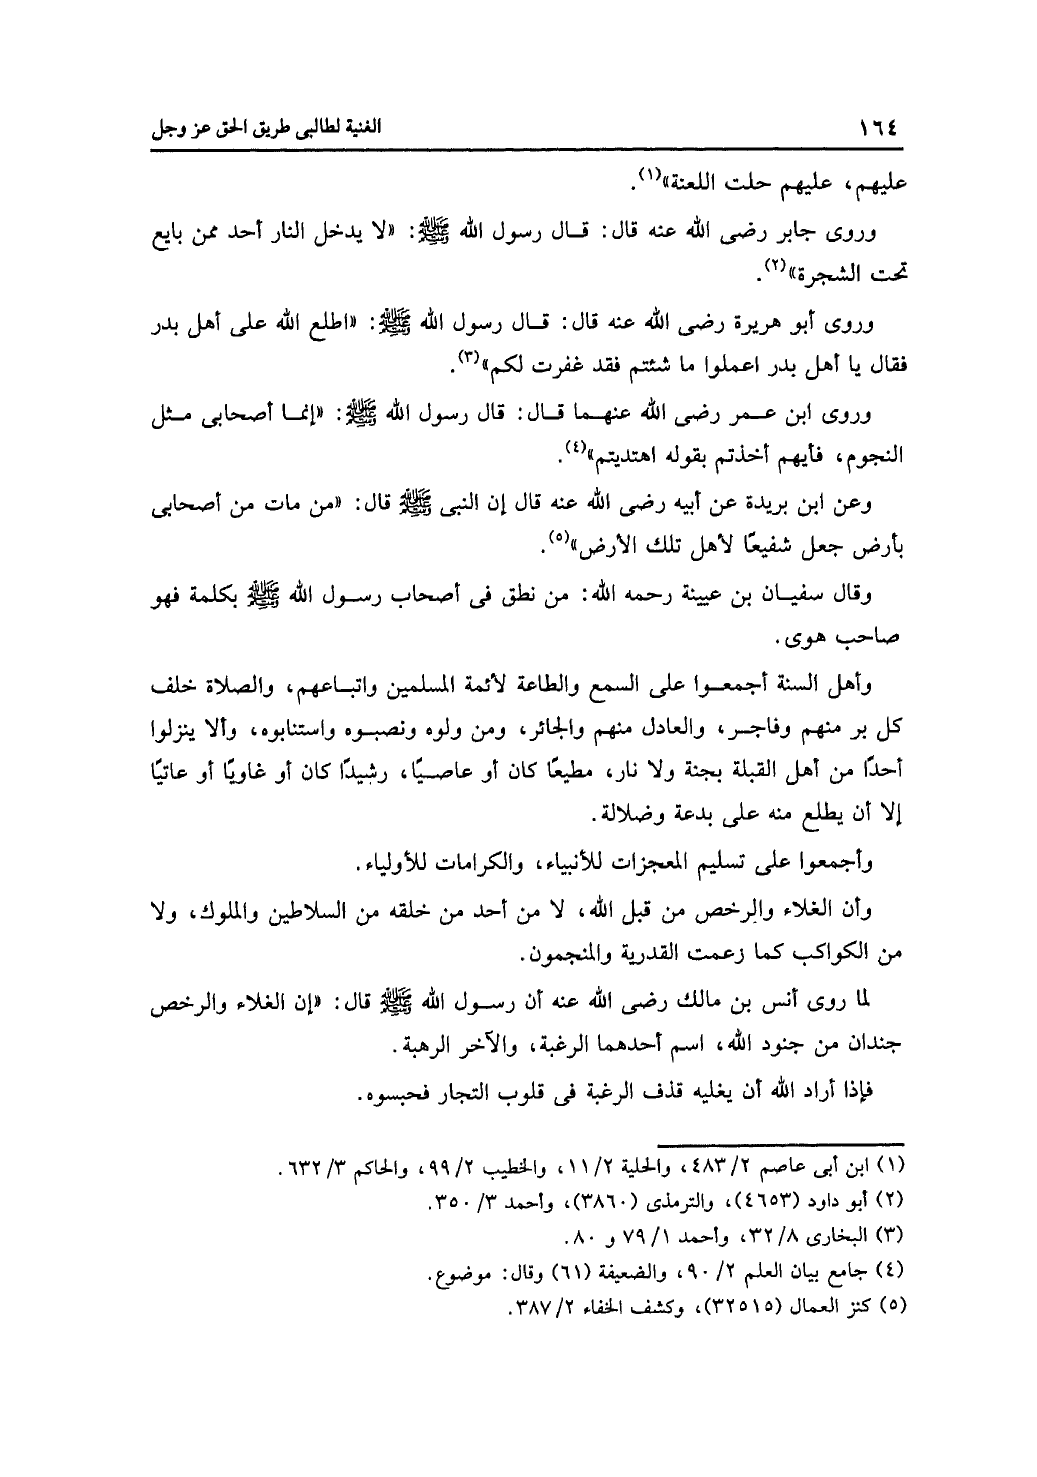 ١٦٤ الغنية لطالبى طريق الحق عز وجل
عليهم، عليهم حلت اللعنة»(١).
وروى جابر رضى الله عنه قال: قال رسول الله ﷺ: «لا يدخل النار أحد ممن بايع
تحت الشجرة»(٢).
وروى أبو هريرة رضى الله عنه قال: قال رسول الله ﷺ: «اطلع الله على أهل بدر
فقال يا أهل بدر اعملوا ما شئتم فقد غفرت لكم»(٣).
وروى ابن عمر رضى الله عنهما قال: قال رسول الله ﷺ: «إنما أصحابى مثل
النجوم، فأيهم أخذتم بقوله اهتديتم»(٤).
وعن ابن بريدة عن أبيه رضى الله عنه قال إن النبى ﷺ قال: «من مات من أصحابى
بأرض جعل شفيعًا لأهل تلك الأرض»(٥).
وقال سفيان بن عيينة رحمه الله: من نطق فى أصحاب رسول الله ﷺ بكلمة فهو
صاحب هوى.
وأهل السنة أجمعوا على السمع والطاعة لأئمة المسلمين واتباعهم، والصلاة خلف
كل بر منهم وفاجر، والعادل منهم والجائر، ومن ولوه ونصبوه واستنابوه، وألا ينزلوا
أحدًا من أهل القبلة بجنة ولا نار، مطيعًا كان أو عاصيًا، رشيدًا كان أو غاويًا أو عاتيًا
إلا أن يطلع منه على بدعة وضلالة.
وأجمعوا على تسليم المعجزات للأنبياء، والكرامات للأولياء.
وأن الغلاء والرخص من قبل الله، لا من أحد من خلقه من السلاطين والملوك، ولا
من الكواكب كما زعمت القدرية والمنجمون.
لما روى أنس بن مالك رضى الله عنه أن رسول الله ﷺ قال: «إن الغلاء والرخص
جندان من جنود الله، اسم أحدهما الرغبة، والآخر الرهبة.
فإذا أراد الله أن يغليه قذف الرغبة فى قلوب التجار فحبسوه.
(١) ابن أبى عاصم ٢/ ٤٨٣، والحلية ٢/ ١١، والخطيب ٢/ ٩٩، والحاكم ٣/ ٦٣٢.
(٢) أبو داود (٤٦٥٣)، والترمذى (٣٨٦٠)، وأحمد ٣/ ٣٥٠.
(٣) البخارى ٨/ ٣٢، وأحمد ١/ ٧٩ و ٨٠.
(٤) جامع بيان العلم ٢/ ٩٠، والضعيفة (٦١) وقال: موضوع.
(٥) كنز العمال (٣٢٥١٥)، وكشف الخفاء ٢/ ٣٨٧.